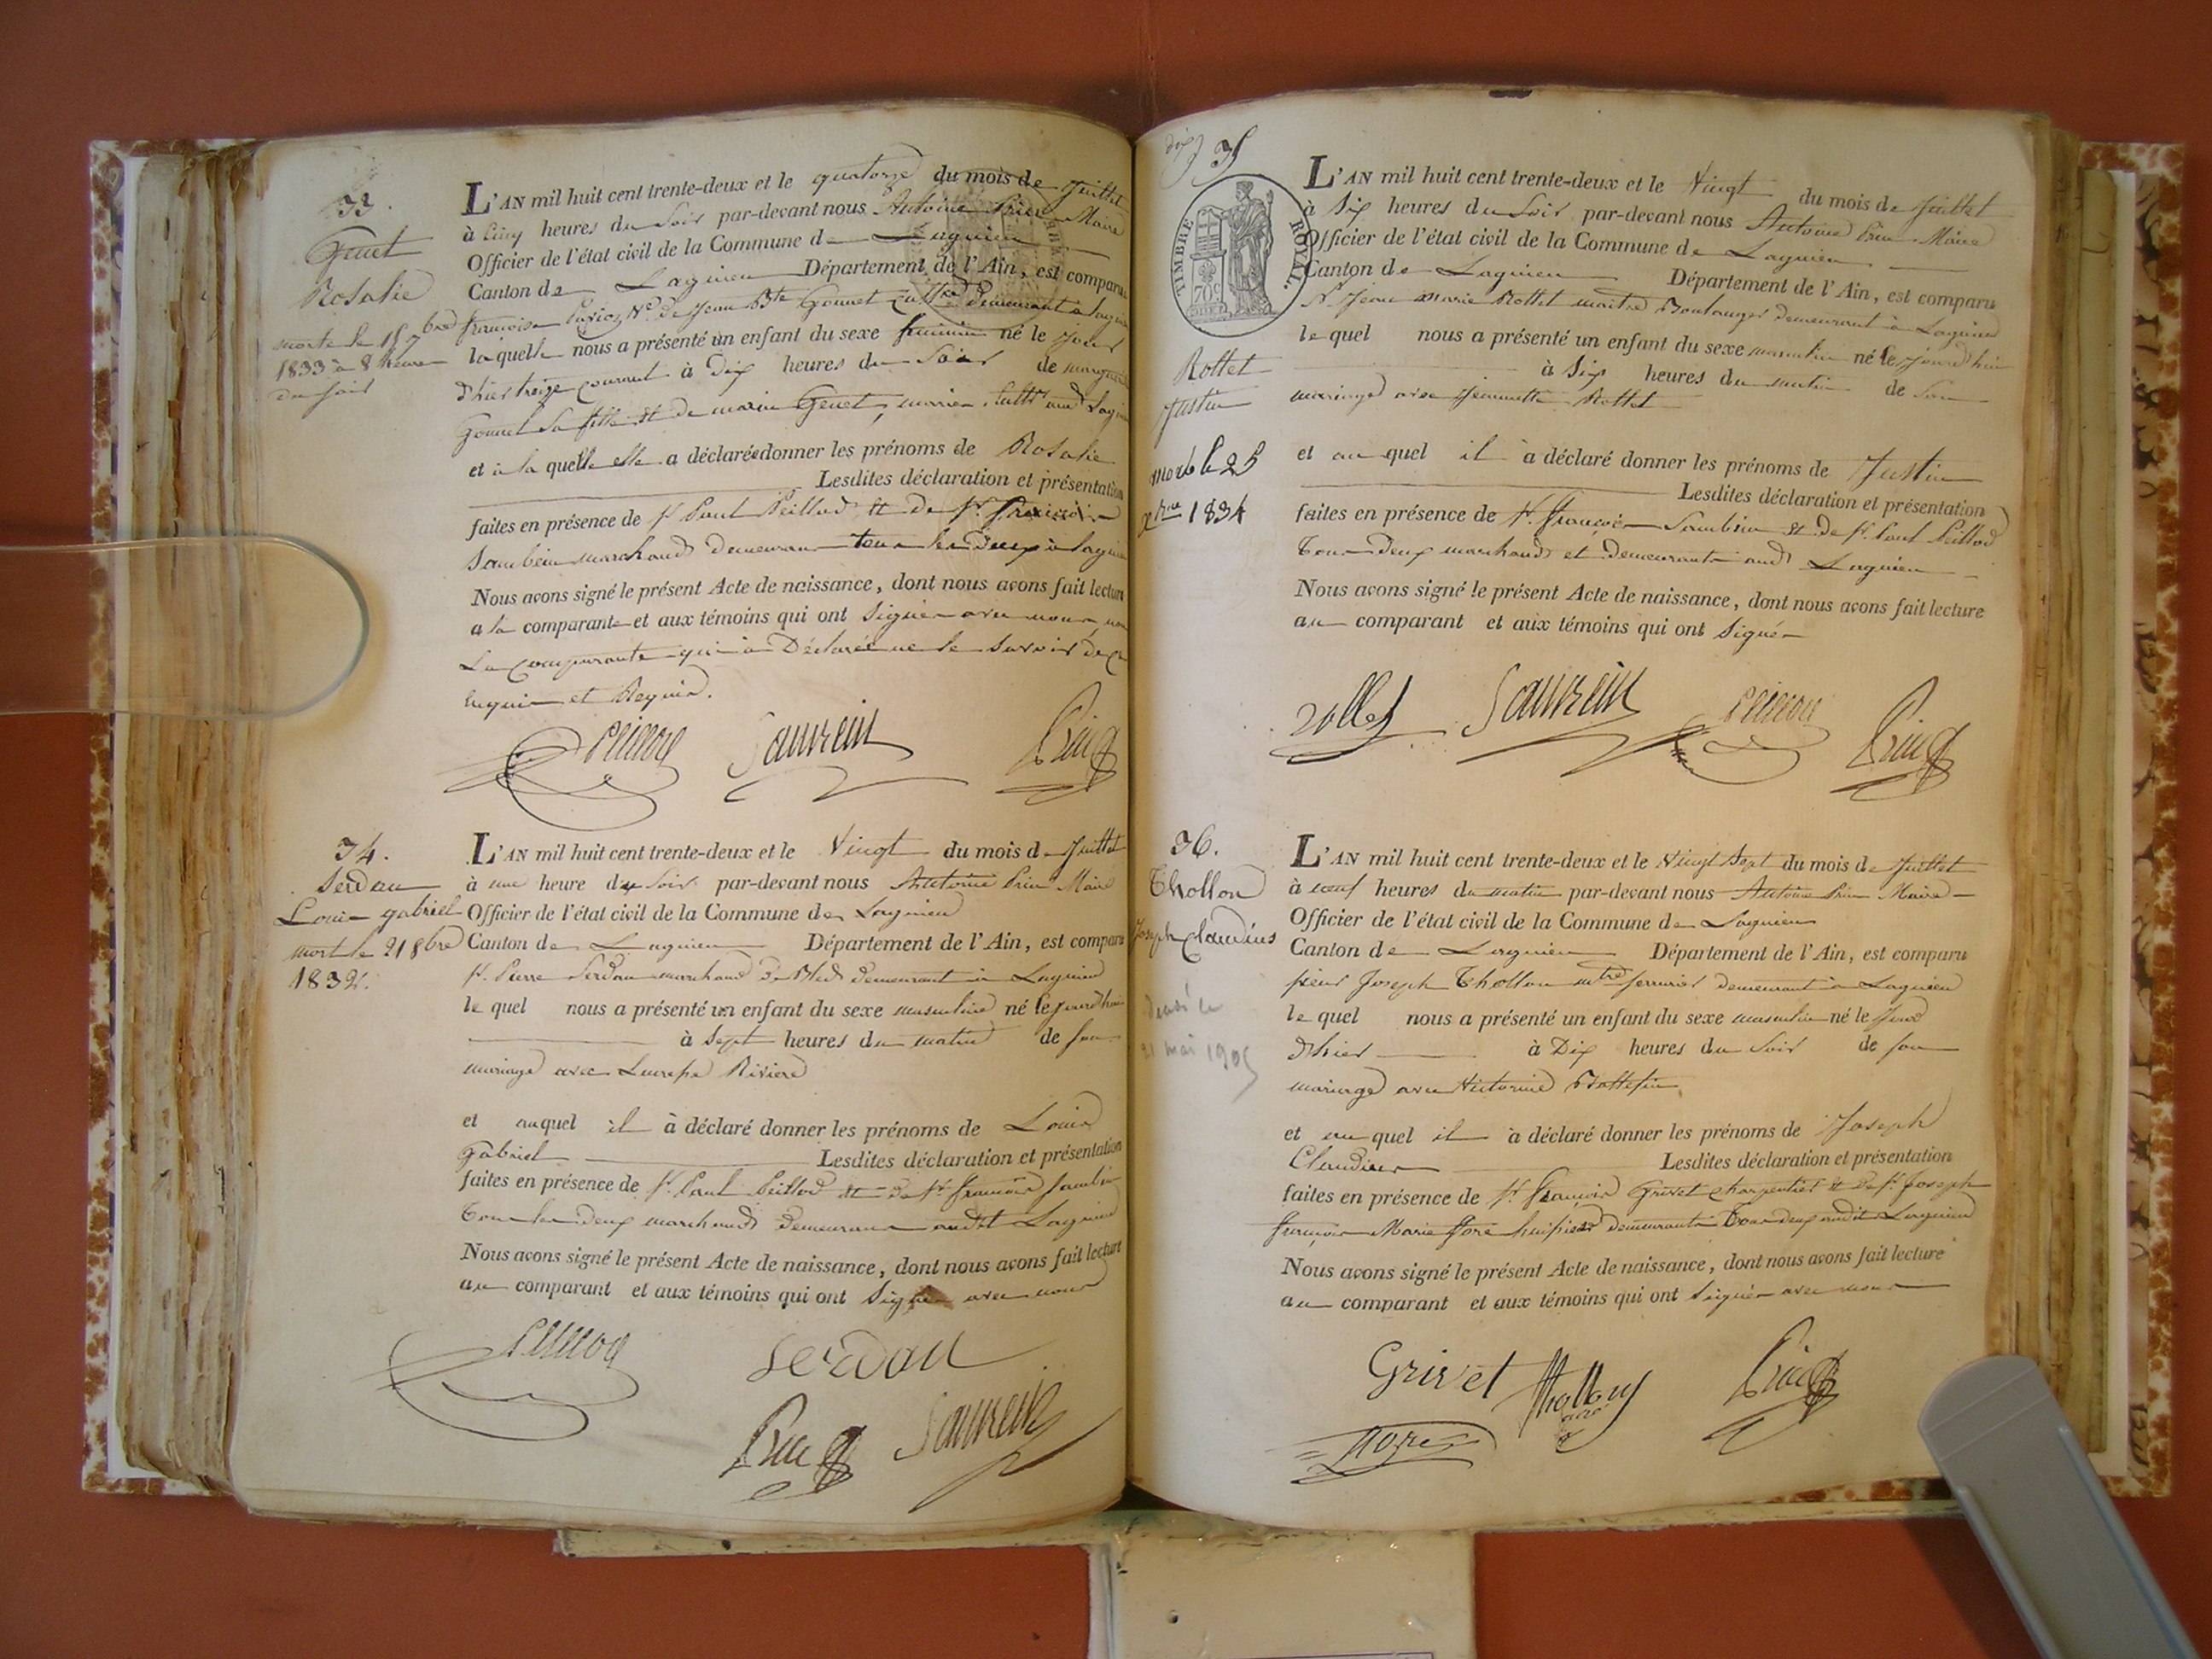 33.
Genet
Rosalie
morte le 15 7bre
1833 à 8 heures
du soir
L'AN mil huit cent trente-deux et le quatorze du mois de Juillet
à cinq heures du Soir par-devant nous Antoine Prin Maire
Officier de l'état civil de la Commune de Lagnieu
Canton de Lagnieu Département de l'Ain, est comparu
françoise Ve de Jean Bte Gonnet demeurant à
laquelle nous a présenté un enfant du sexe feminin né le jour
d'hier treize courant à Dix heures du Soir de
Gonnet Sa fille et de Genet,
et à la quelle elle a déclaré donner les prénoms de Rosalie
Lesdites déclaration et présentation
faites en présence de Sr Paul Peillod et de Sr françois
Saurein marchands demeurant tous les deux à
Nous avons signé le présent Acte de naissance, dont nous avons fait lecture
a la comparante et aux témoins qui ont Signés avec nous,
La comparante qui a Déclaré ne le Savoir de ce
enquis et Requis.
Peillod Saurein Prin
34.
Serdan
Louis gabriel
mort le 21 8bre
1832.
L'AN mil huit cent trente-deux et le Vingt du mois de Juillet
à une heure du Soir par-devant nous Antoine Prin Maire
Officier de l'état civil de la Commune de Lagnieu
Canton de Lagnieu Département de l'Ain, est comparu
Sr Pierre Serdan marchand de Bled demeurant à Lagnieu
le quel nous a présenté un enfant du sexe masculin né le jourdhui
à Sept heures du matin de son
mariage avec Riviere
et auquel il à déclaré donner les prénoms de Louis
Gabriel Lesdites déclaration et présentation
faites en présence de Sr Paul Peillod et de Sr françois
Tous les deux marchands demeurant audit Lagnieu
Nous avons signé le présent Acte de naissance, dont nous avons fait lecture
au comparant et aux témoins qui ont Signés avec nous
Peillod Serdan
Prin Saurein
35
TIMBRE ROYAL.
70c
Rottet
Justin
mort le 25
Xbre 1834
L'AN mil huit cent trente-deux et le Vingt du mois de Juillet
à Six heures du Soir par-devant nous Antoine Prin Maire
Officier de l'état civil de la Commune de Lagnieu
Canton de Lagnieu Département de l'Ain, est comparu
Sr Jean Marie Rottet maitre Boulanger demeurant à Lagnieu
le quel nous a présenté un enfant du sexe masculin né le jourdhui
à Six heures du matin de Son
mariage avec Jeannette Rottet
et au quel il à déclaré donner les prénoms de Justin
Lesdites déclaration et présentation
faites en présence de Sr françois Saurein et de Sr Paul Peillod
Tous Deux marchands et demeurants audt Lagnieu
Nous avons signé le présent Acte de naissance, dont nous avons fait lecture
au comparant et aux témoins qui ont Signés
rollet Saurein Peillod Prin
36.
Thollon
Joseph Claudius
21 mai 1905
L'AN mil huit cent trente-deux et le Vingt Sept du mois de Juillet
à neuf heures du matin par-devant nous Antoine Prin Maire
Officier de l'état civil de la Commune de Lagnieu
Canton de Lagnieu Département de l'Ain, est comparu
sieur Joseph Thollon mtre serrurier demeurant à Lagnieu
le quel nous a présenté un enfant du sexe masculin né le Jour
d'hier à Dix heures du Soir de son
mariage avec
et au quel il à déclaré donner les prénoms de Joseph
Claudius Lesdites déclaration et présentation
faites en présence de Sr françois Grivet charpentier et de Sr Joseph
françois Marie huissier demeurants tous deux audit Lagnieu
Nous avons signé le présent Acte de naissance, dont nous avons fait lecture
au comparant et aux témoins qui ont Signés avec nous
Grivet Thollon Prin